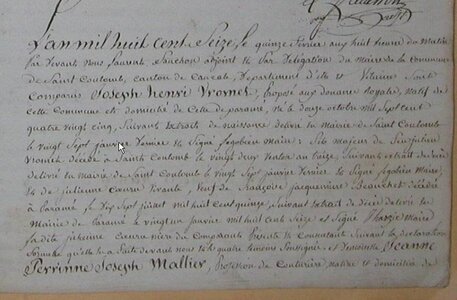 L'an mil huit cent Seize, le quinze fevrier aux huit heures du Matin
Par Devant nous Laurent adjoint et Par Délégation du Maire de la commune
de Saint Coulomb, canton de Cancale, Departement d'ille et Vilaine Sont
Comparus Joseph Henri Vromet, préposé aux douanes royales, natif de
Cette Commune et domicilié de Cette de paramé, né le douze octobre mil Sept cent
quatre vingt cinq, Suivant extrait de naissance délivré du Mairie de Saint Coulomb
le vingt Sept janvier Dernier et Signé Maire; fils majeur de
Vromet décédé à Saint Coulomb le vingt deux an treize, Suivant extrait de décès
délivré du Mairie de Saint Coulomb le vingt Sept janvier Dernier et Signé Maire,
et de julienne vivante, Veuf de Françoise jacquemine décédée
à Paramé le Dix Sept juillet mil huit cent quinze, Suivant extrait de décès délivré du
Mairie de Paramé le vingt un janvier mil huit cent Seize et Signé Maire
la dite julienne mère du Comparant Présente et Consentant Suivant la déclaration
qu'elle a faite devant nous et les quatre temoins Soussignés et demoiselle Jeanne
Perrinne Joseph Mallier, Profession de Couturière native et domiciliée de